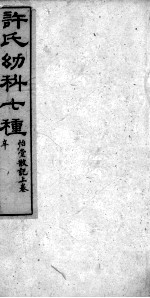 許氏幼科七種
怡堂散記上卷